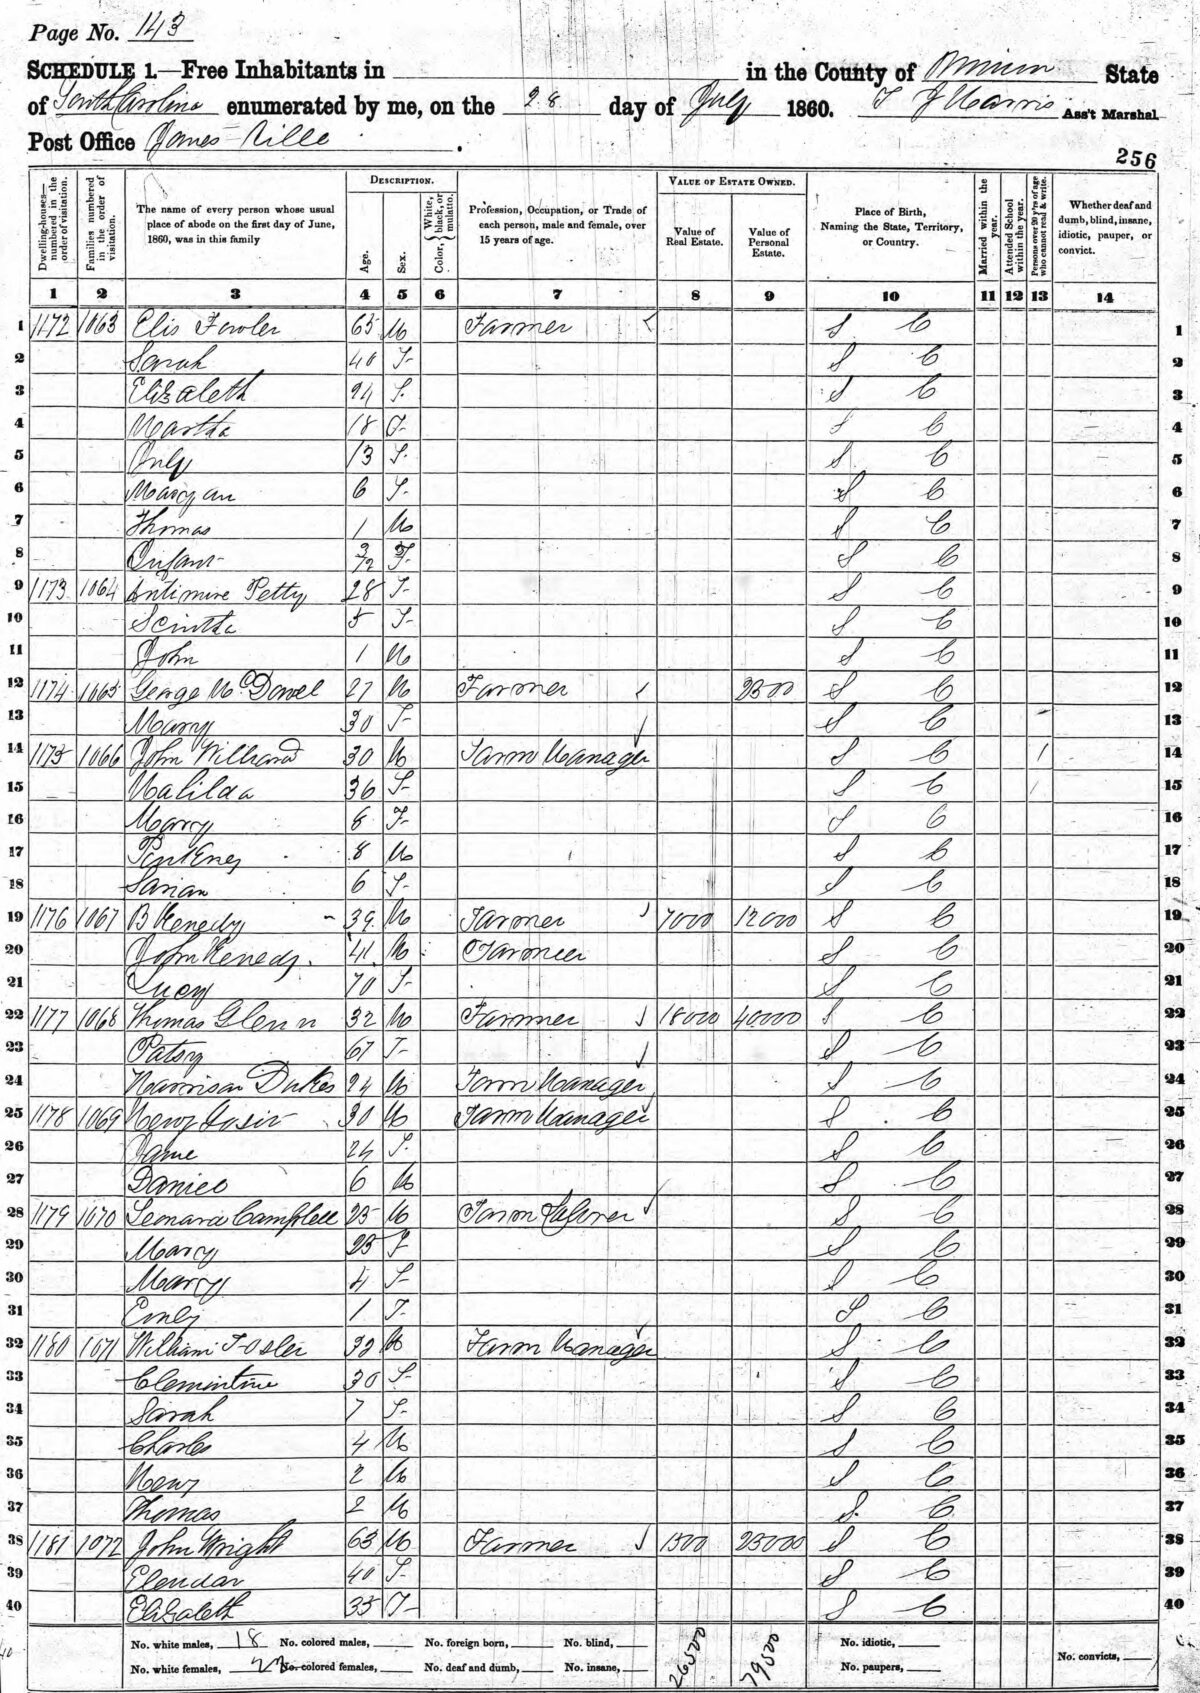 Page No. 143
SCHEDULE 1.—Free Inhabitants in in the County of Union State
of South Carolina enumerated by me, on the 28 day of July 1860. T J Harris Ass't Marshal.
Post Office Jones-Ville .
256
Dwelling-houses—numbered in the order of visitation. Families numbered in the order of visitation. The name of every person whose usual place of abode on the first day of June, 1860, was in this family Description. Age. Sex. Color, White, black, or mulatto. Profession, Occupation, or Trade of each person, male and female, over 15 years of age. Value of Estate Owned. Value of Real Estate. Value of Personal Estate. Place of Birth, Naming the State, Territory, or Country. Married within the year. Attended School within the year. Persons over 20 y'rs of age who cannot read & write. Whether deaf and dumb, blind, insane, idiotic, pauper, or convict.
1 2 3 4 5 6 7 8 9 10 11 12 13 14
1 1172 1063 Elis Fowler 65 M Farmer S C 1
2 Sarah 40 F S C 2
3 Elizabeth 24 F S C 3
4 Martha 18 F S C 4
5 July 13 F S C 5
6 Maryan 6 F S C 6
7 Thomas 1 M S C 7
8 Infant 2/12 F S C 8
9 1173 1064 Petty 28 F S C 9
10 5 F S C 10
11 John 1 M S C 11
12 1174 1065 George McDowel 27 M Farmer 2300 S C 12
13 Mary 30 F S C 13
14 1175 1066 John Williard 30 M Farm Manager S C 1 14
15 Matilda 36 F S C 15
16 Mary 8 F S C 16
17 Pinkney 8 M S C 17
18 Sarian 6 F S C 18
19 1176 1067 B Kenedy 39 M Farmer 7000 12000 S C 19
20 John Kenedy 41 M Farmer S C 20
21 Lucy 70 F S C 21
22 1177 1068 Thomas Glenn 32 M Farmer 18000 40000 S C 22
23 Patsy 67 F S C 23
24 Harrison Dukes 24 M Farm Manager S C 24
25 1178 1069 30 M Farm Manager S C 25
26 Jane 24 F S C 26
27 Daniel 6 M S C 27
28 1179 1070 Leonard Campbell 25 M Farm Laborer S C 28
29 Mary 25 F S C 29
30 Mary 4 F S C 30
31 Emly 1 F S C 31
32 1180 1071 William Foster 32 M Farm Manager S C 32
33 Clementine 30 F S C 33
34 Sarah 7 F S C 34
35 Charles 4 M S C 35
36 Heny 2 M S C 36
37 Thomas 2 M S C 37
38 1181 1072 John Wright 63 M Farmer 1500 25000 S C 38
39 Elendar 40 F S C 39
40 Elizabeth 35 F S C 40
No. white males, 18 No. colored males, No. foreign born, No. blind, 26500 79500 No. idiotic,
No. white females, 22 No. colored females, No. deaf and dumb, No. insane, No. paupers, No. convicts,